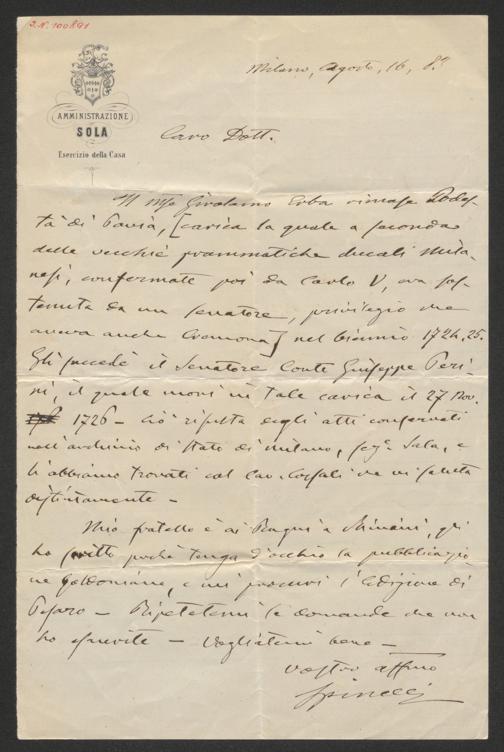 I.N. 100891
AMMINISTRAZIONE
SOLA
Esercizio della Casa
Milano, Agosto, 16, 8
Caro Dott.
Il Mse Girolamo Erba rimase Podes-
tà di Pavia, [carica la quale a seconda
delle vecchie prammatiche ducali Mila-
nesi, confermate poi da Carlo V, era sos-
tenuta da un Senatore, privilegio che
aveva anche Cremona] nel biennio 1724, 25.
Gli succedè il Senatore Conte Giuseppe Peri-
ni, il quale morì in tale carica il 27 Nov.
1726 - Ciò risulta dagli atti conservati
nell'archivio di Stato di Milano, e
li abbiamo trovati col Cav. che vi saluta
distintamente -
Mio fratello è ai Bagni a Rimini, gli
ho scritto perché tenga d'occhio la pubblicazio-
ne goldoniana, e mi procuri l'Edizione di
Pesaro - Ripetetemi le domande che non
ho esaurite - Vogliatemi bene -
vostro affmo
Spinelli